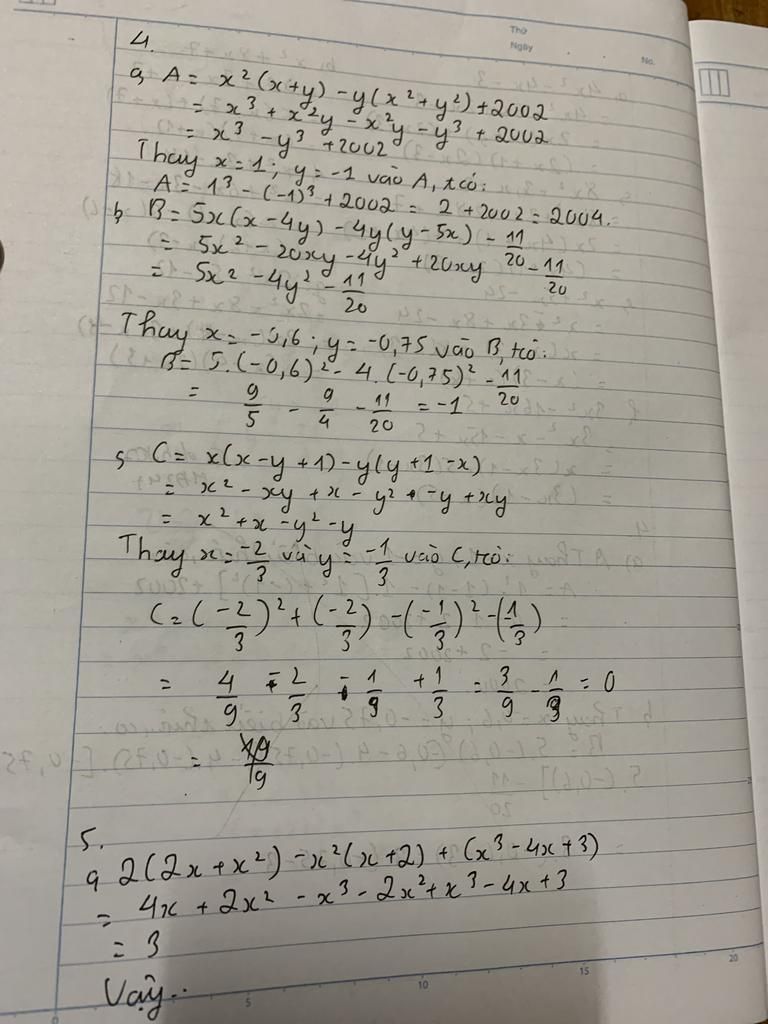 Thứ
Ngày
No.
4.
a, A = x²(x+y) - y(x²+y²) + 2002
= x³ + x²y - x²y - y³ + 2002
= x³ - y³ + 2002
Thay x = 1; y = -1 vào A, tcó:
A = 1³ - (-1)³ + 2002 = 2 + 2002 = 2004.
b, B = 5x(x - 4y) - 4y(y - 5x) - 11/20
= 5x² - 20xy - 4y² + 20xy - 11/20
= 5x² - 4y² - 11/20
Thay x = -0,6; y = -0,75 vào B, tcó:
B = 5.(-0,6)² - 4.(-0,75)² - 11/20
= 9/5 - 9/4 - 11/20 = -1
C = x(x - y + 1) - y(y + 1 - x)
= x² - xy + x - y² - y + xy
= x² + x - y² - y
Thay x = -2/3 và y = -1/3 vào C, tcó:
C = (-2/3)² + (-2/3) - (-1/3)² - (1/3)
= 4/9 - 2/3 - 1/9 + 1/3 = 3/9 - 1/3 = 0
=
5.
a, 2(2x + x²) - x²(x+2) + (x³ - 4x + 3)
= 4x + 2x² - x³ - 2x² + x³ - 4x + 3
= 3
Vậy..
5 10 15 20